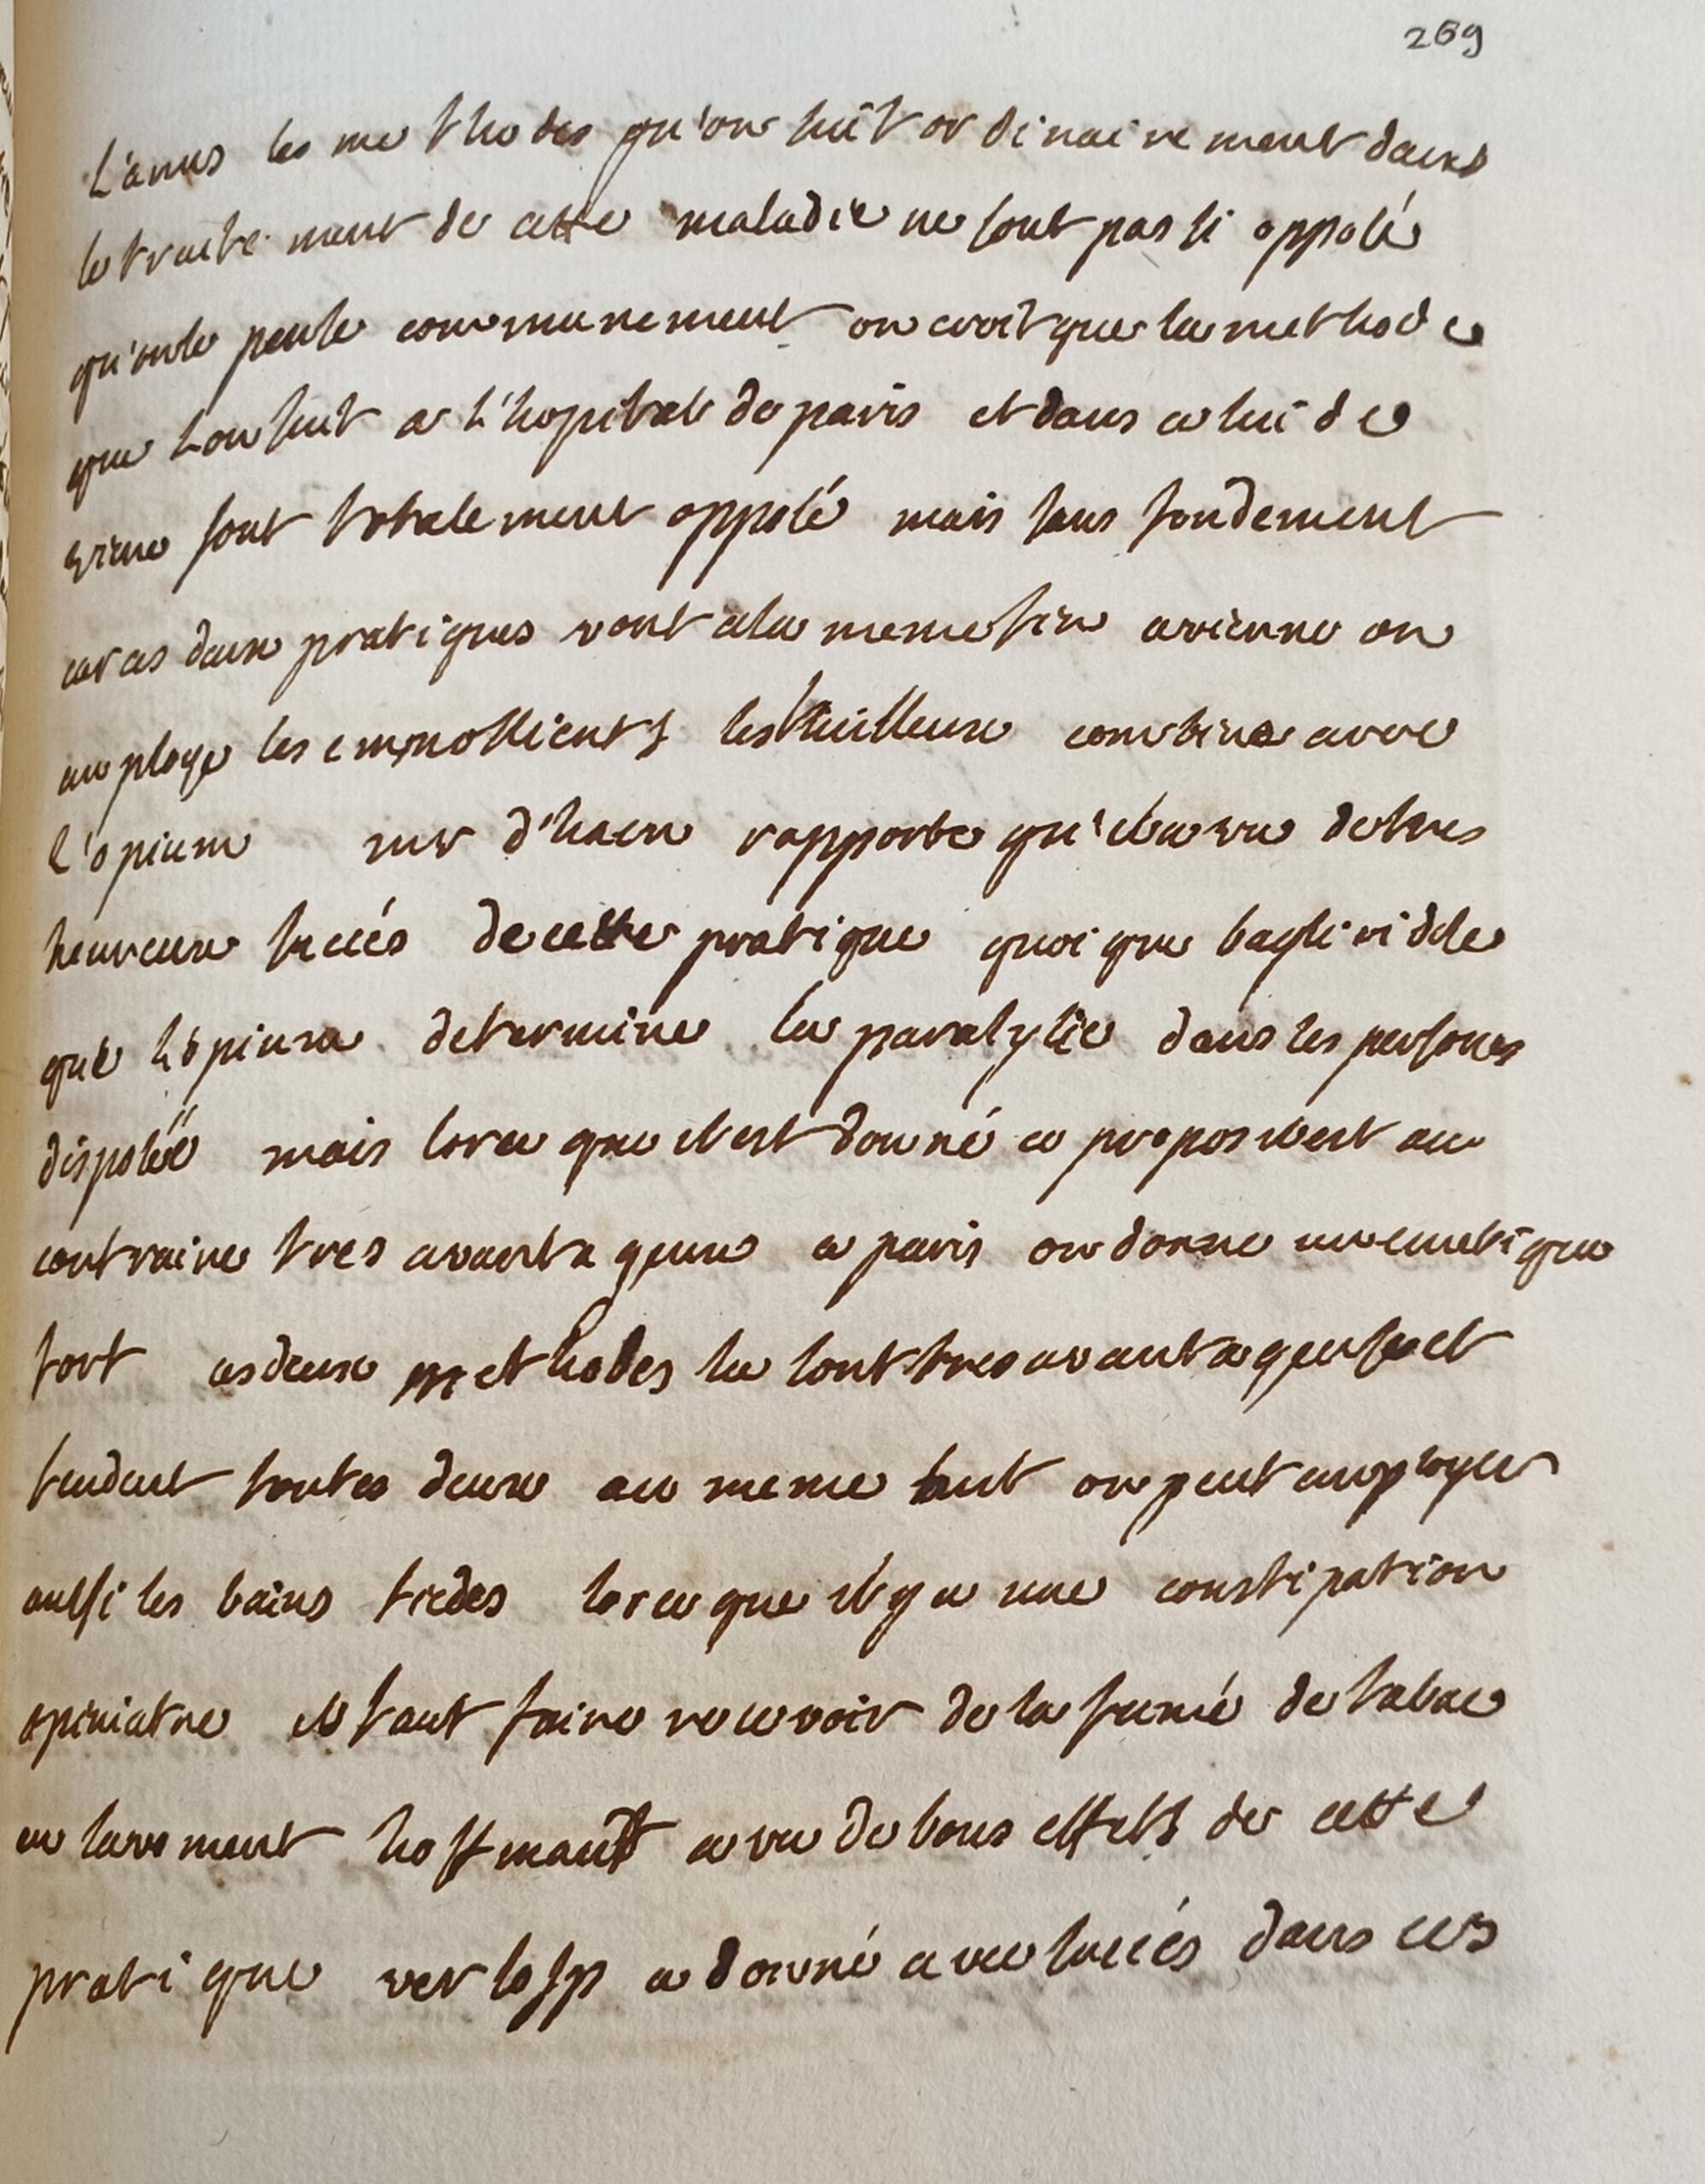 269
L'anus les methodes qu'on suit ordinairement dans
le traitement de cette maladie ne sont pas si opposé
qu'on le pense communement on croit que la methode
que l'on suit a l'hopital de paris et dans celui de
viene sont totalement opposé mais sans fondement
car ces deux pratiques vont a la meme fin a vienne on
employe les emmollients les huilleux combiné avec
l'opium mr d'haen rapporte qu'il a vu de tres
heureux succés de cette pratique quoi que baglivi dise
que l'opium determine la paralysie dans les persones
disposéé mais lorce que il est donné a propos il est au
contraire tres avantageux a paris on donne un emetique
fort ces deux methodes la sont tres avantageuses et
tendent toutes deux au meme but on peut employer
aussi les bains tiedes lorce que il y a une constipation
opiniatre il faut faire recevoir de la fumé de tabac
en lavement hoffmant a vu de bons effets de cette
pratique verlosp a donné avec succés dans ces